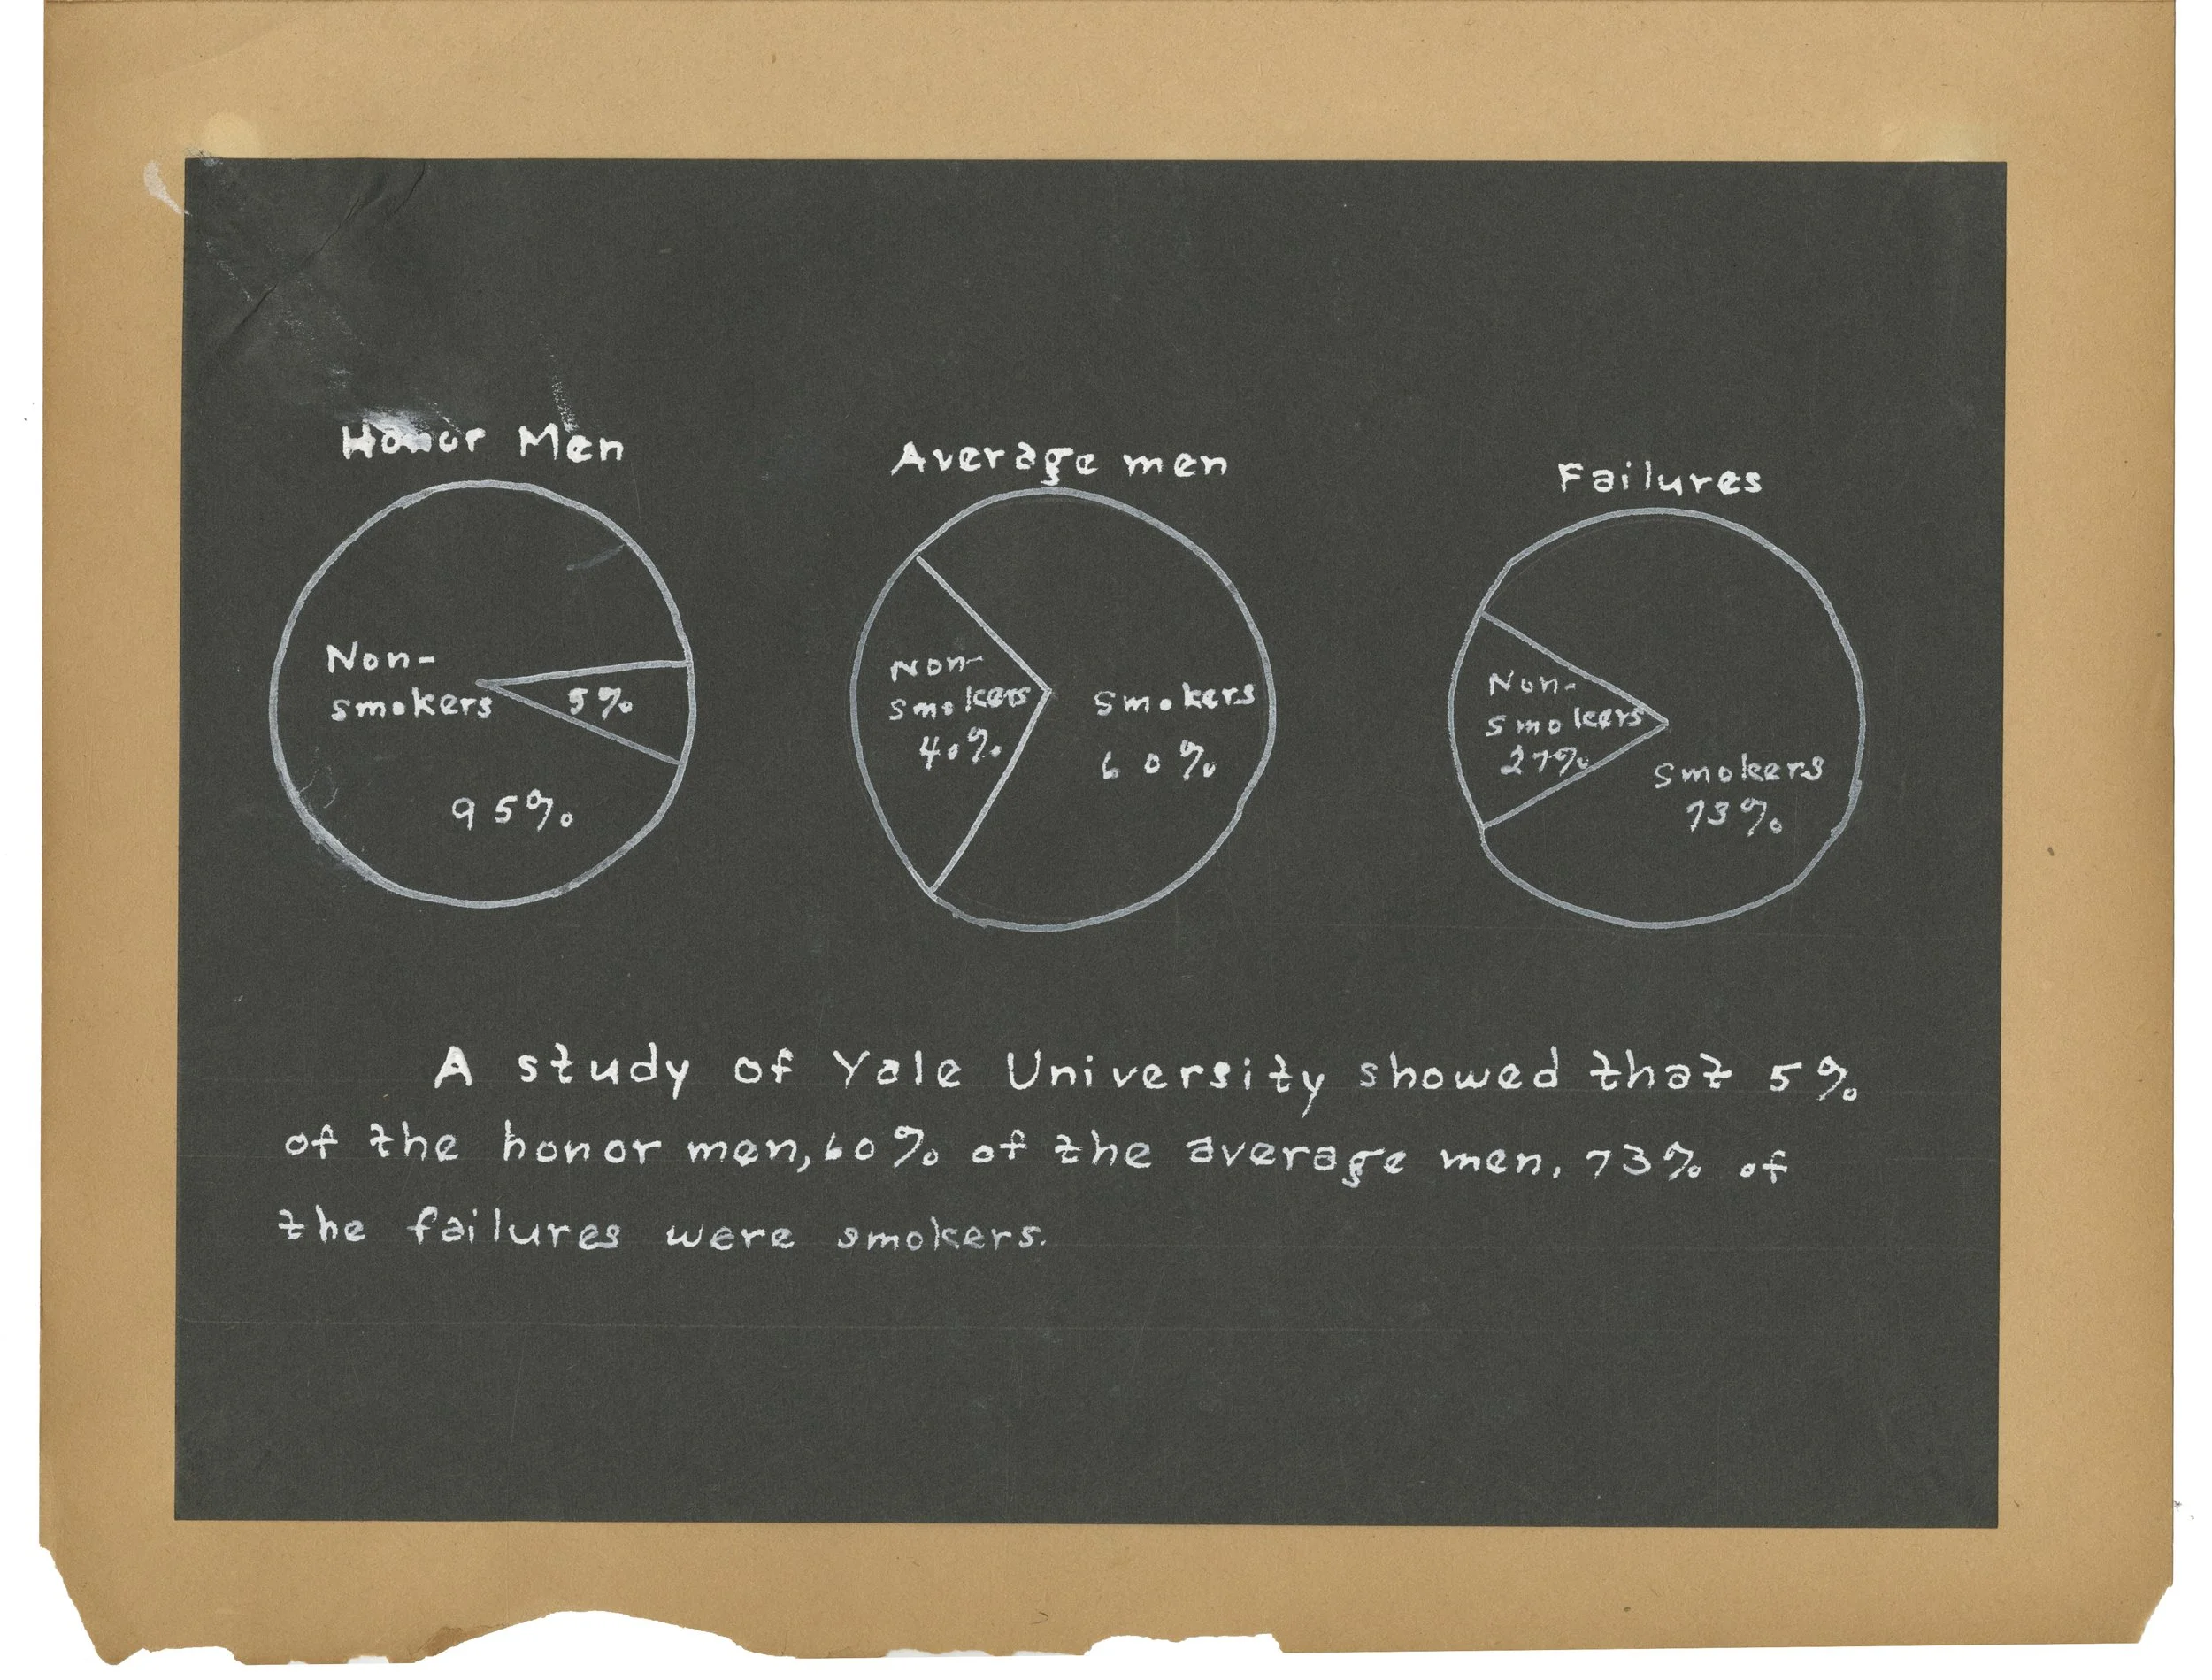 Honor Men
Non-
smokers
5%
95%
Average men
Non-
smokers
40%
Smokers
60%
Failures
Non-
smokers
27%
Smokers
73%
A study of Yale University showed that 5%
of the honor men, 60% of the average men, 73% of
the failures were smokers.